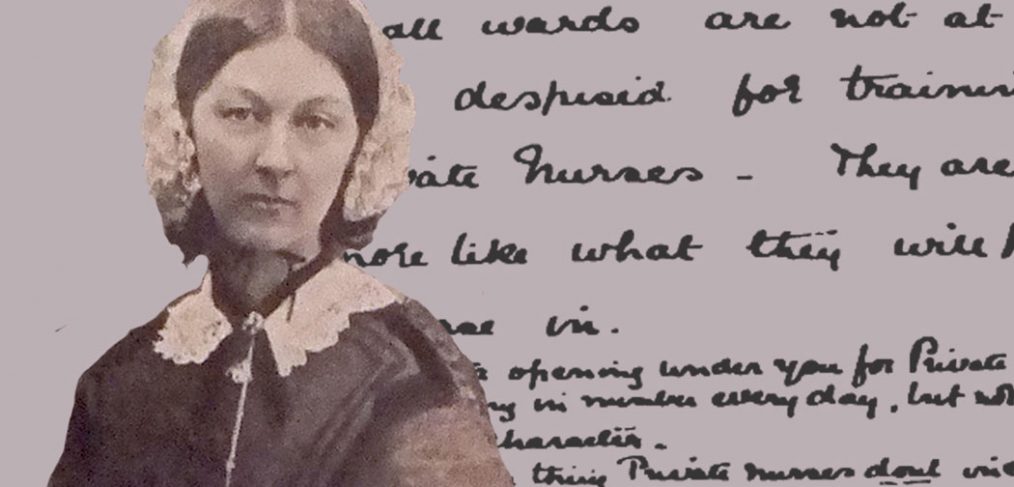 all wards are not at
despised for trainin
vate Nurses - They are
more like what they will
in.
opening under you for Private
in number every day, but not
character.
thing Private Nurses dont